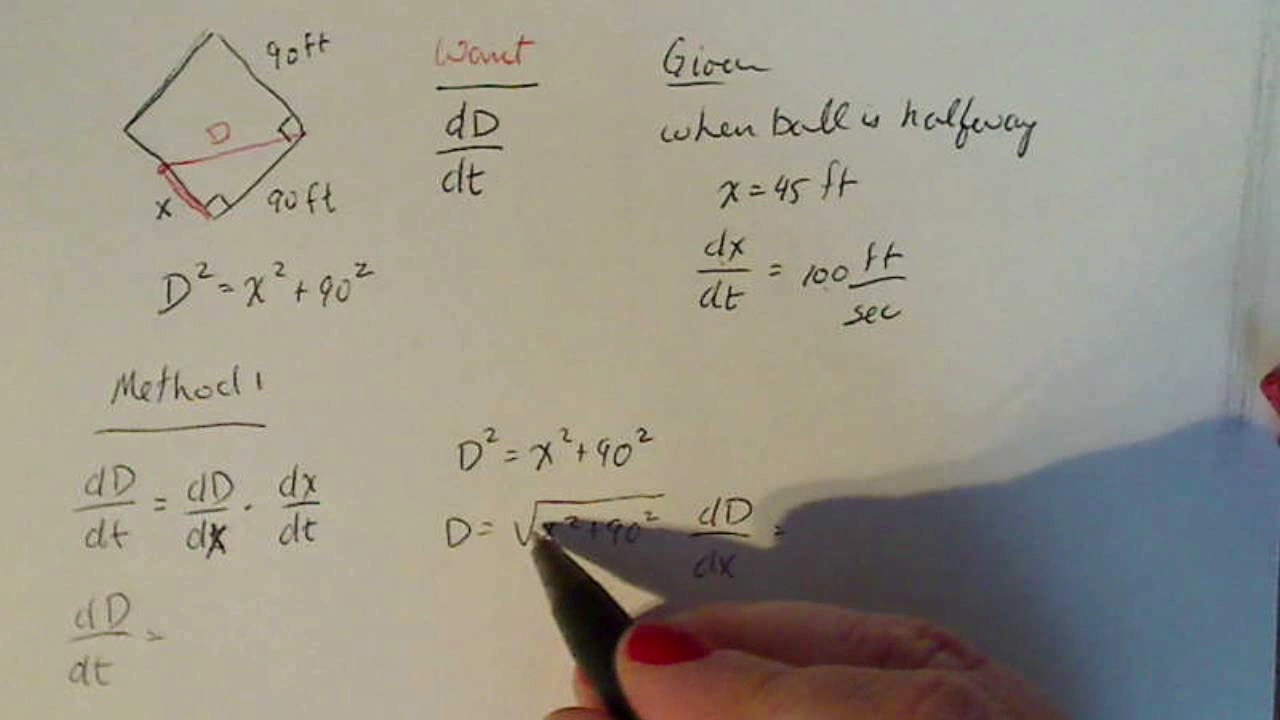 90ft
D
x
90ft
D² = x² + 90²
Want
dD/dt
Given
when ball is halfway
x = 45 ft
dx/dt = 100 ft/sec
Method 1
dD/dt = dD/dx · dx/dt
dD/dt =
D² = x² + 90²
D = √(x² + 90²) dD/dx =